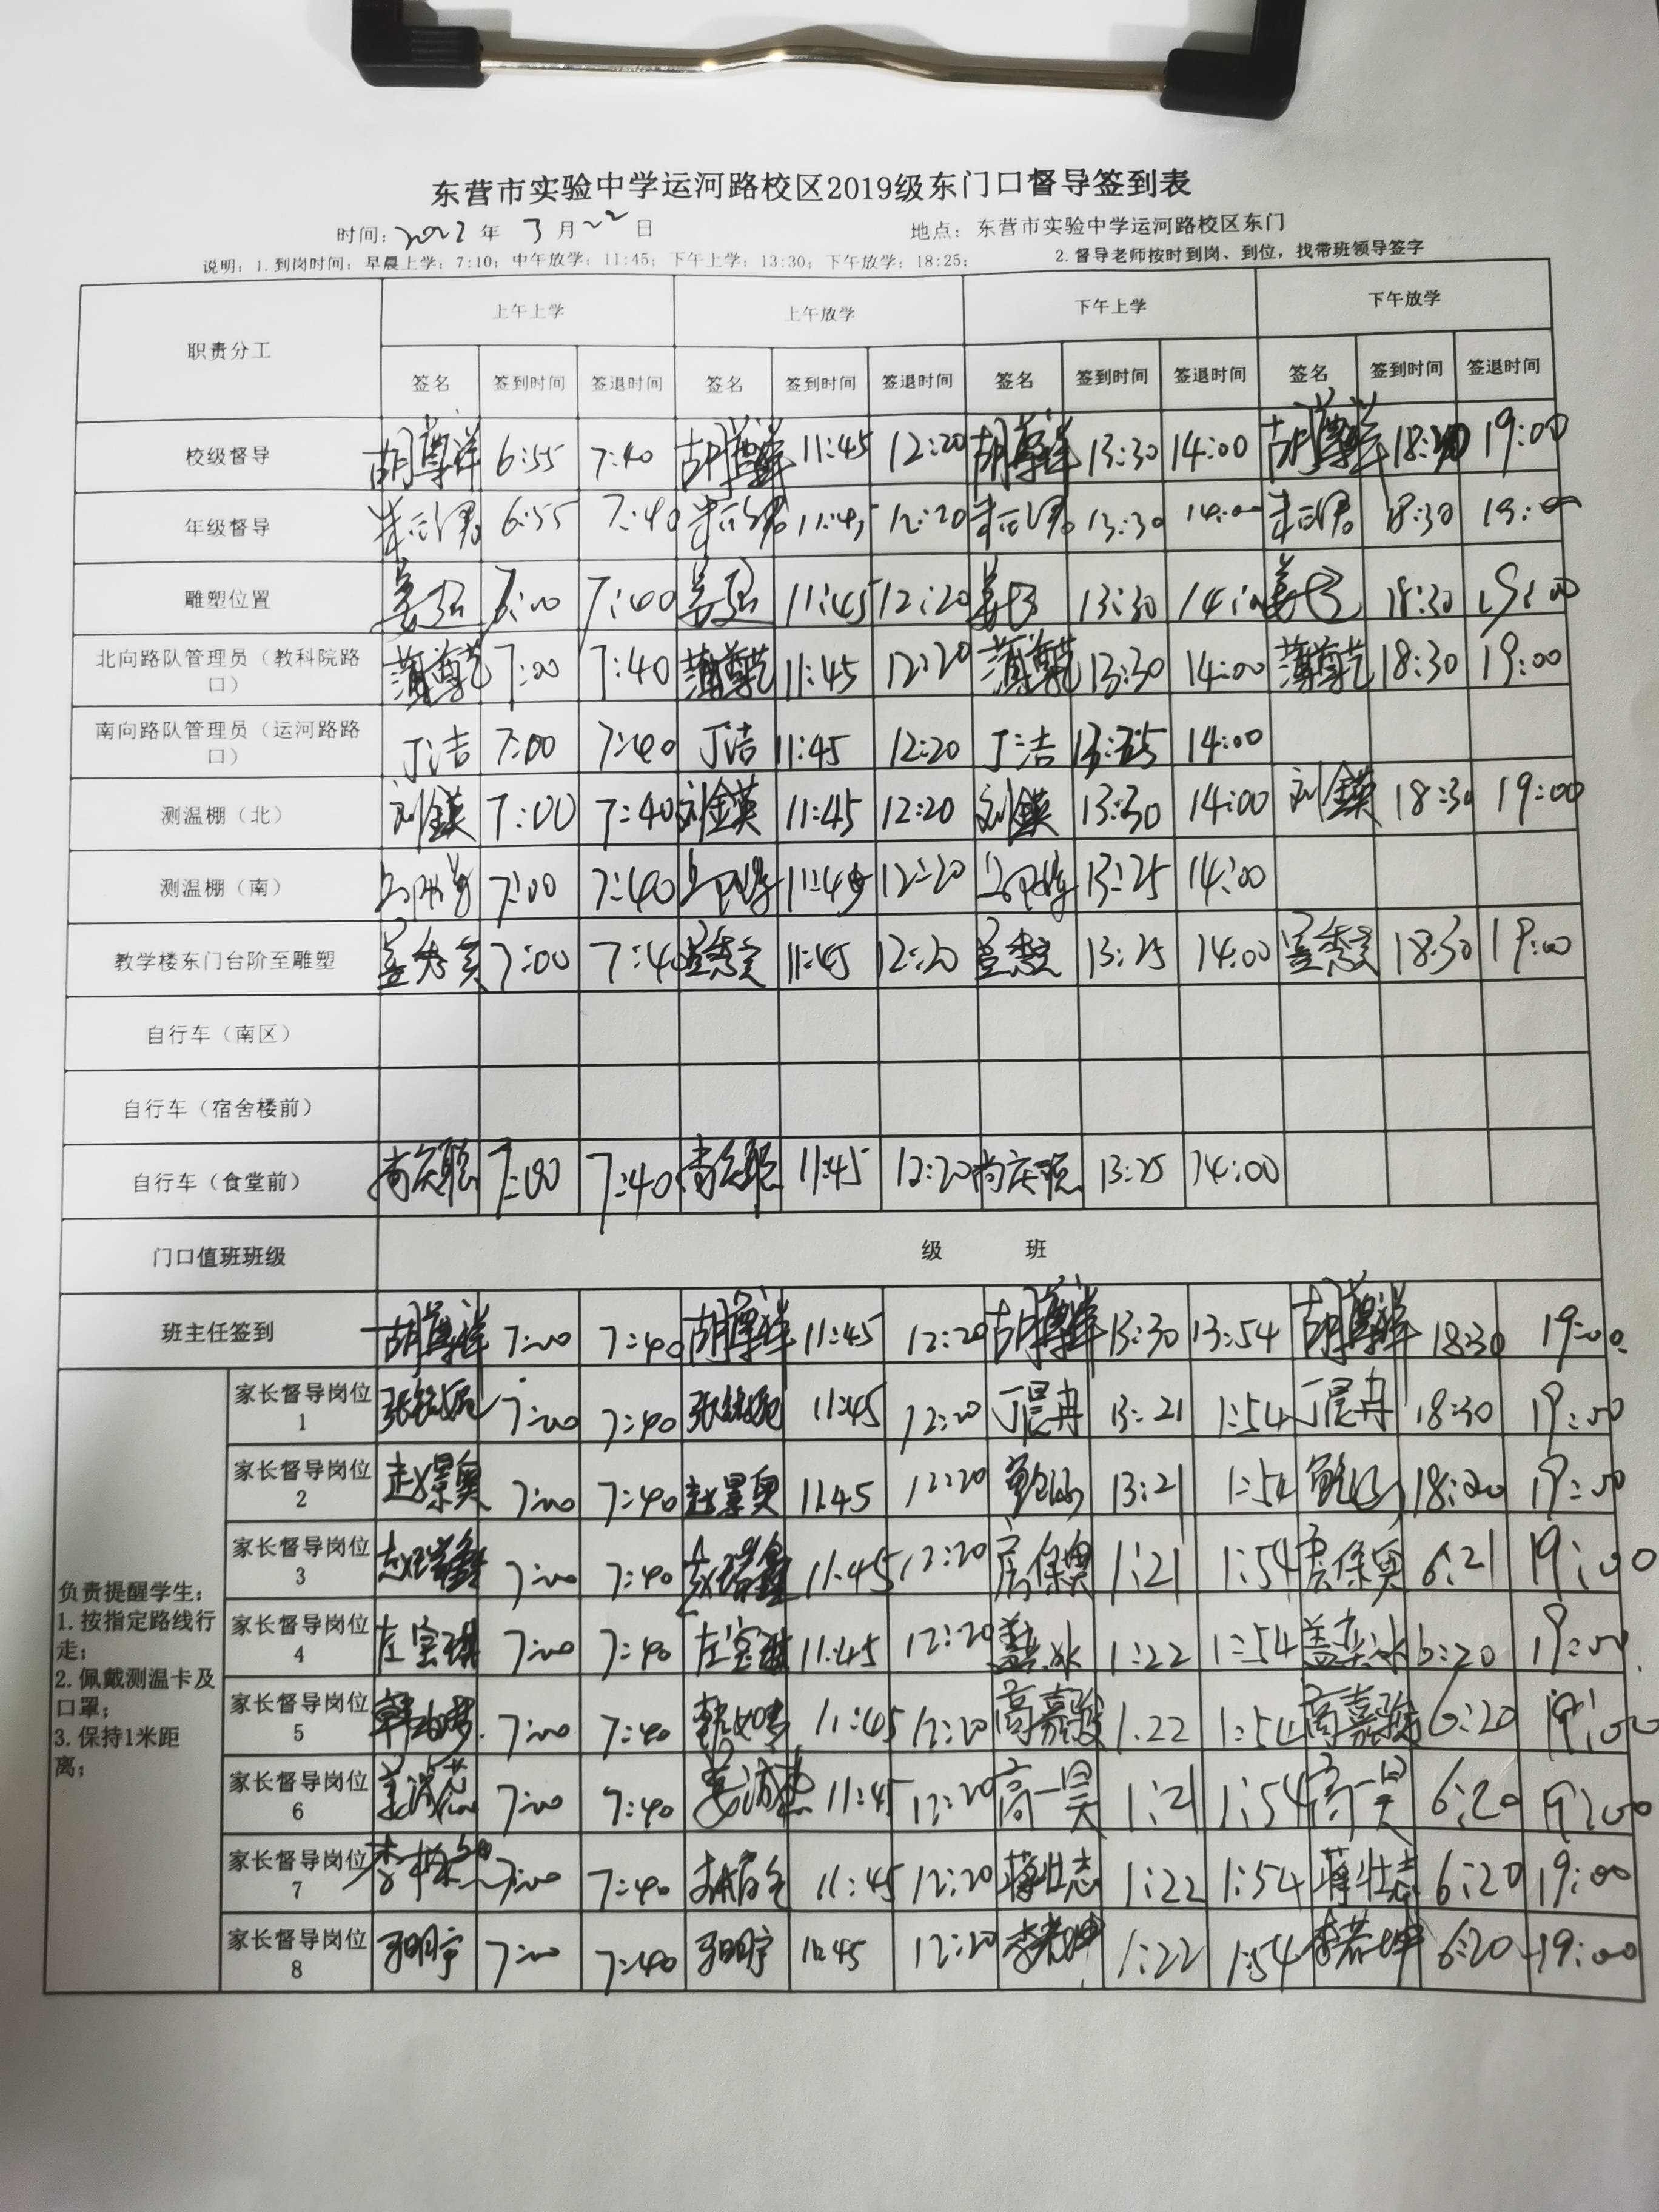 东营市实验中学运河路校区2019级东门口督导签到表
时间: 2022 年 3 月 22 日 地点: 东营市实验中学运河路校区东门
说明: 1.到岗时间: 早晨上学: 7:10; 中午放学: 11:45; 下午上学: 13:30; 下午放学: 18:25; 2.督导老师按时到岗、到位, 找带班领导签字
职责分工 上午上学 上午放学 下午上学 下午放学
签名 签到时间 签退时间 签名 签到时间 签退时间 签名 签到时间 签退时间 签名 签到时间 签退时间
校级督导 胡尊祥 6:55 7:40 胡尊祥 11:45 12:20 胡尊祥 13:30 14:00 胡尊祥 18:30 19:00
年级督导 6:55 7:40 11:45 12:20 13:30 14:00 18:30 19:00
雕塑位置 7:00 7:40 11:45 12:20 13:30 14:00 18:30 19:00
北向路队管理员（教科院路
口） 7:00 7:40 11:45 12:20 13:30 14:00 18:30 19:00
南向路队管理员（运河路路
口） 丁洁 7:00 7:40 丁洁 11:45 12:20 丁洁 14:00
测温棚（北） 刘金英 7:00 7:40 刘金英 11:45 12:20 刘金英 13:30 14:00 刘金英 18:30 19:00
测温棚（南） 7:00 7:40 12:20 13:25 14:00
教学楼东门台阶至雕塑 7:00 7:40 11:45 12:20 13:25 14:00 18:30 19:00
自行车（南区）
自行车（宿舍楼前）
自行车（食堂前） 尚庆聪 7:00 7:40 尚庆聪 11:45 12:20 尚庆聪 13:25 14:00
门口值班班级 级 班
班主任签到 胡尊祥 7:00 7:40 胡尊祥 11:45 12:20 胡尊祥 13:30 13:54 胡尊祥 18:30 19:00
负责提醒学生;
1.按指定路线行
走;
2.佩戴测温卡及
口罩;
3.保持1米距
离;
家长督导岗位
1 7:00 7:40 11:45 12:20 丁晨冉 13:21 1:54 丁晨冉 18:30 19:00
家长督导岗位
2 赵景奥 7:00 7:40 赵景奥 11:45 12:20 13:21 1:54 19:00
家长督导岗位
3 赵瑞鑫 7:00 7:40 赵瑞鑫 11:45 12:20 1:21 1:54 6:21 19:00
家长督导岗位
4 左宝琪 7:00 7:40 左宝琪 11:45 12:20 盖奕冰 1:22 1:54 盖奕冰 6:20 19:00
家长督导岗位
5 7:00 7:40 11:45 12:20 高嘉骏 1:22 1:54 高嘉骏 6:20 19:00
家长督导岗位
6 7:00 7:40 11:45 12:20 高一昊 1:21 1:54 高一昊 6:20 19:00
家长督导岗位
7 7:00 7:40 11:45 12:20 蒋壮志 1:22 1:54 蒋壮志 6:20 19:00
家长督导岗位
8 7:00 7:40 11:45 12:20 李若坤 1:22 1:54 李若坤 6:20 19:00